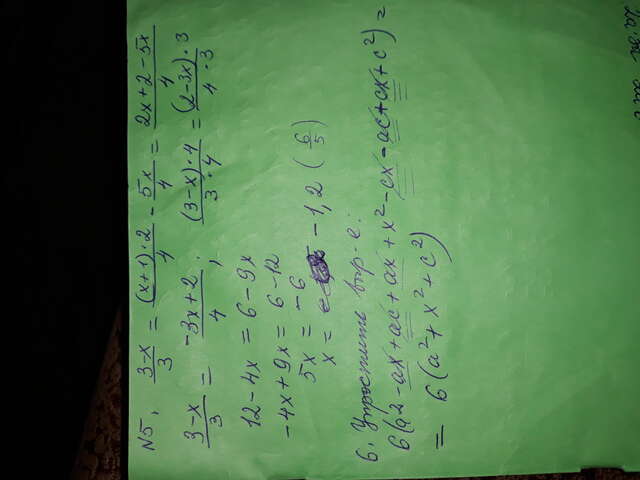 №5. (3-x)/3 = ((x+1)·2)/4 - 5x/4 = (2x+2-5x)/4
(3-x)/3 = (-3x+2)/4 ; ((3-x)·4)/(3·4) = ((2-3x)·3)/(4·3)
12-4x = 6-9x
-4x+9x = 6-12
5x = -6
x = -1,2 (6/5)
6. Упростите выр-е:
6(a2-ax+ac+ax+x²-cx-ac+cx+c²)=
= 6(a²+x²+c²)